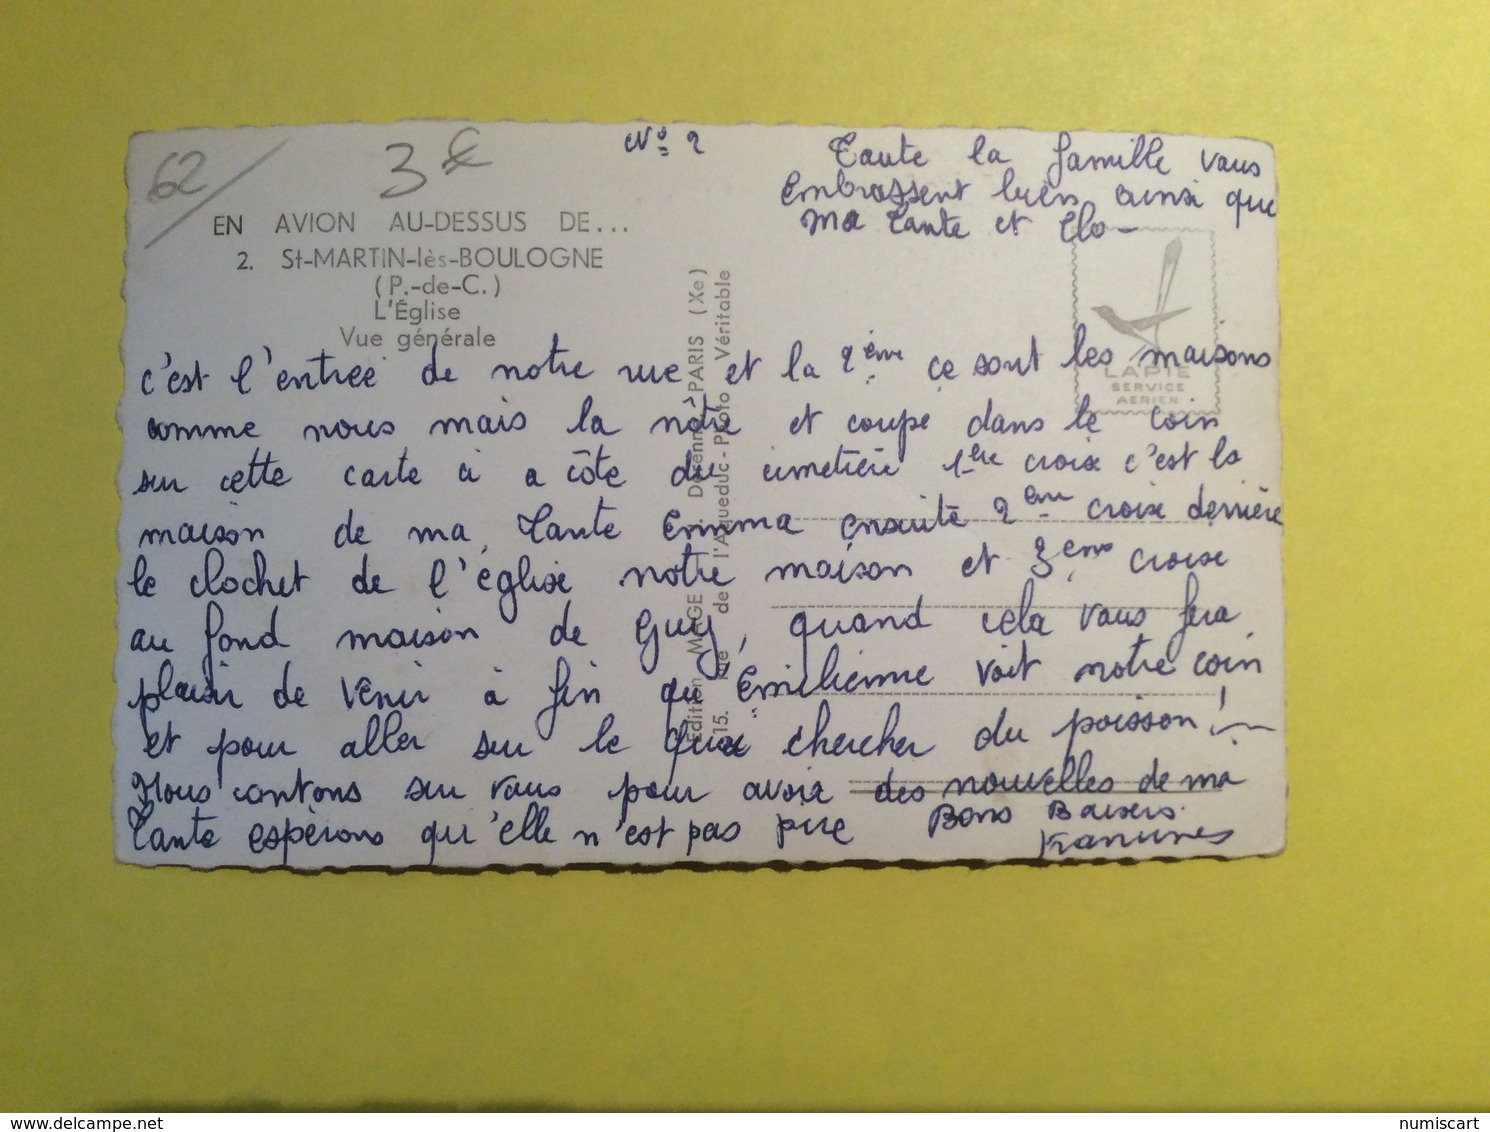 62/
3€
N° 2
Toute la famille vous
embrassent bien ainsi que
ma Tante et Clo —
EN AVION AU-DESSUS DE...
2. St-MARTIN-lès-BOULOGNE
(P.-de-C.)
L'Église
Vue générale
LAPIE
SERVICE
AÉRIEN
Edition MAGE PARIS (Xe)
15. rue de l'Aqueduc - Photo Véritable
c'est l'entrée de notre rue et la 2ème ce sont les maisons
comme nous mais la nôtre et coupé dans le coin
sur cette carte ci a côté du cimetière 1ère croix c'est la
maison de ma Tante Emma ensuite 2ème croix derrière
le clochet de l'église notre maison et 3ème croix
au fond maison de Guy, quand cela vous fera
plaisir de venir à fin qu'Emilienne voit notre coin
et pour aller sur le quai chercher du poisson !
Nous contons sur vous pour avoir des nouvelles de ma
Tante espérons qu'elle n'est pas pire Bons Baisers
numiscart
www.delcampe.net